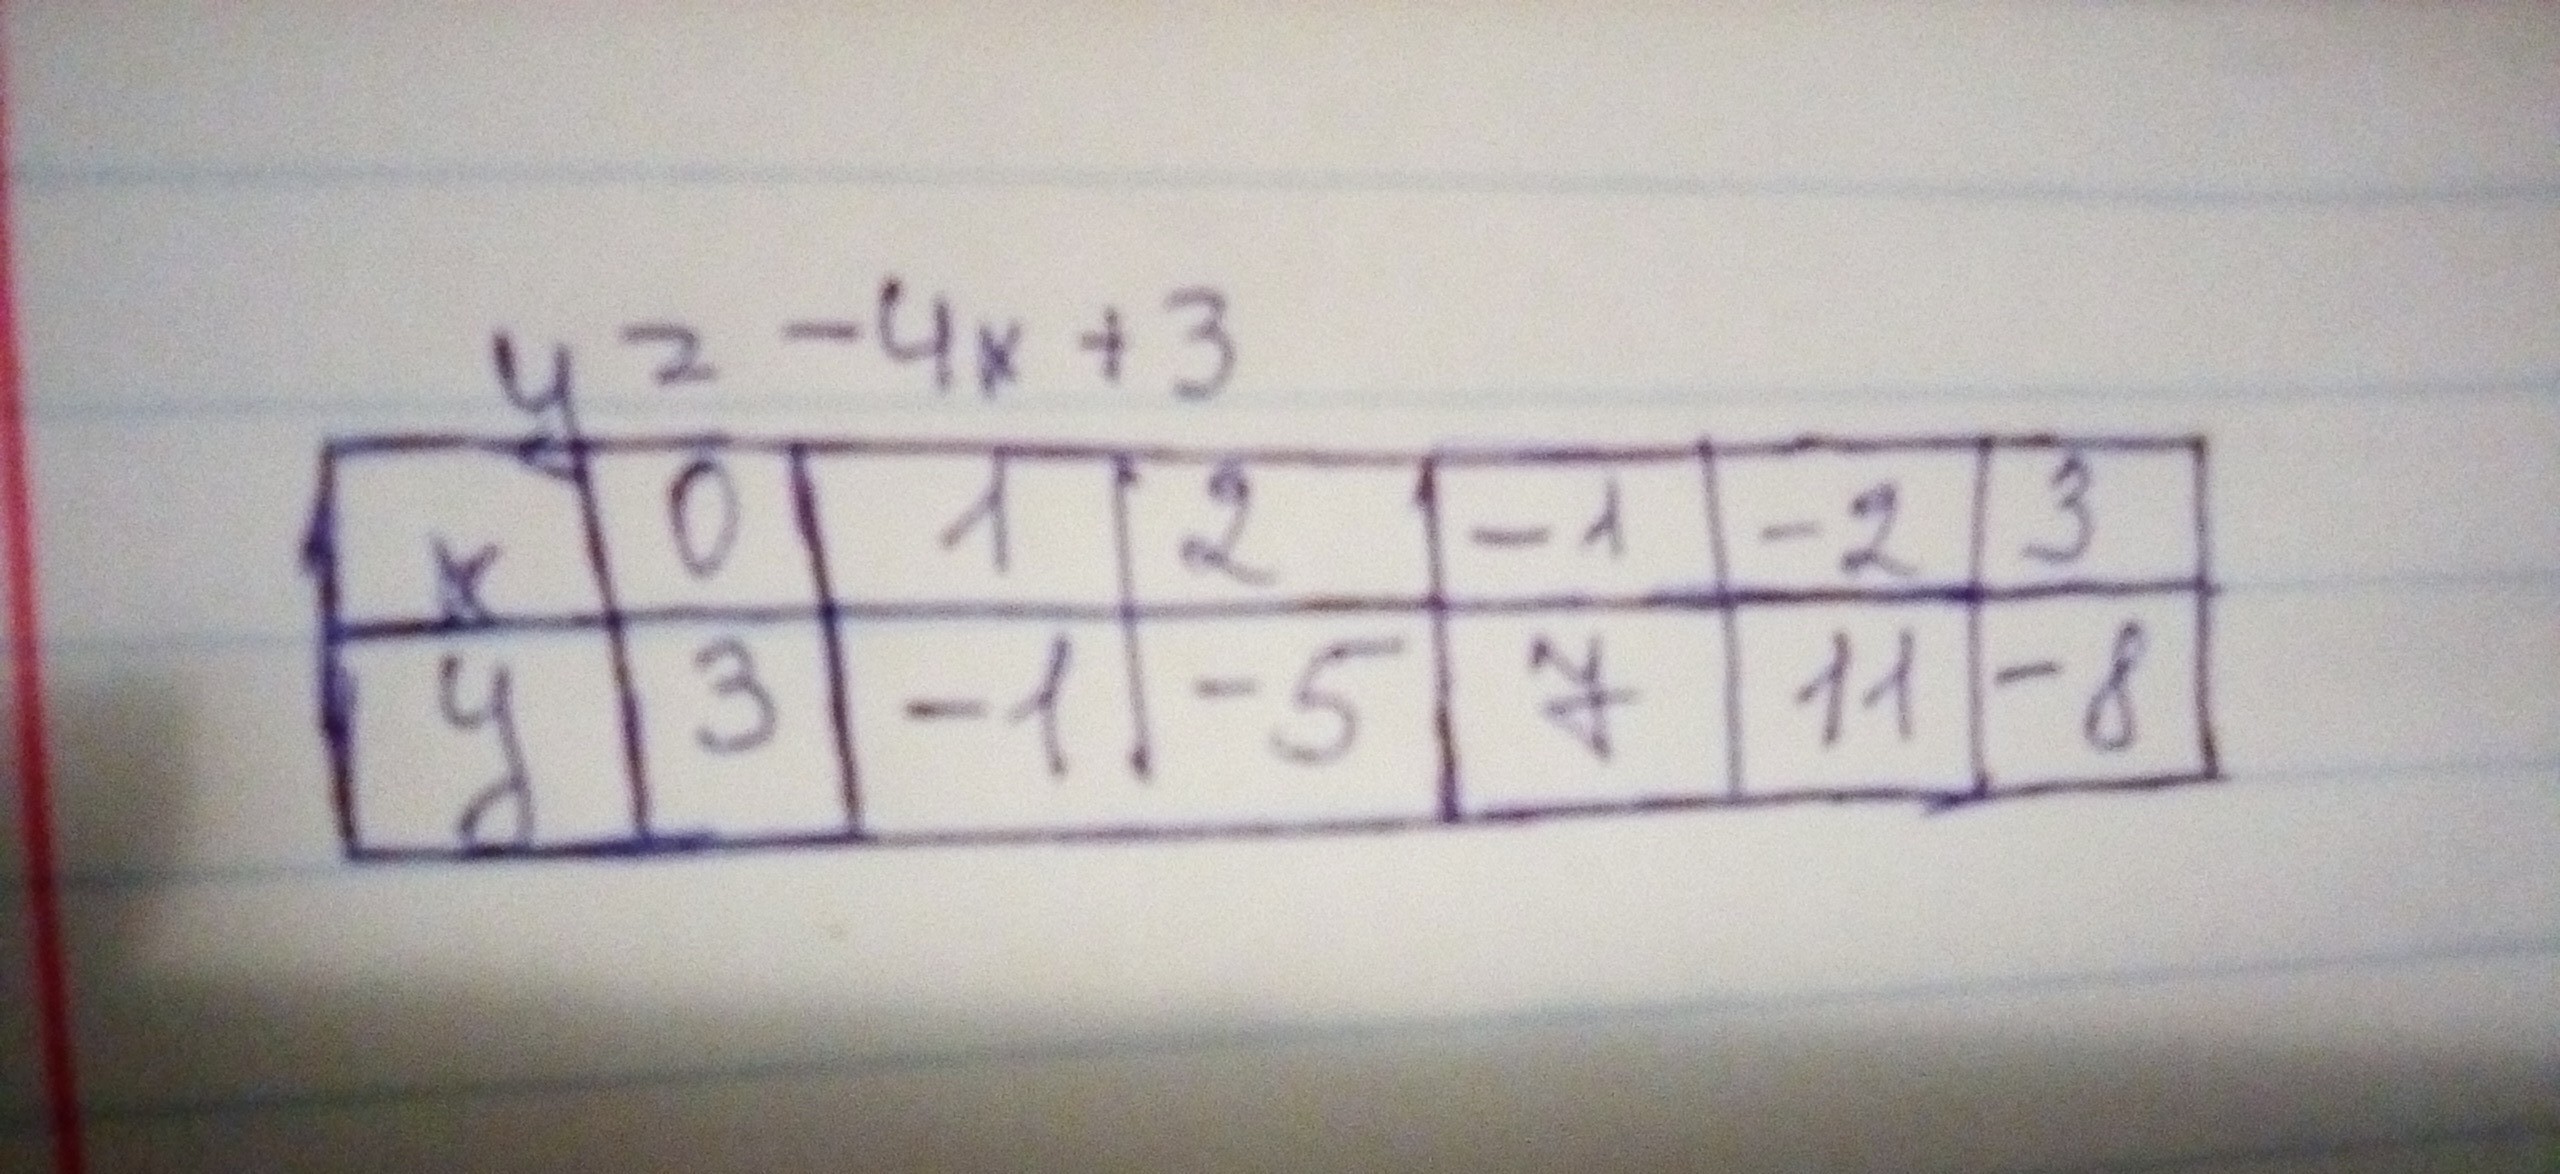 y = -4x + 3
x 0 1 2 -1 -2 3
y 3 -1 -5 7 11 -8